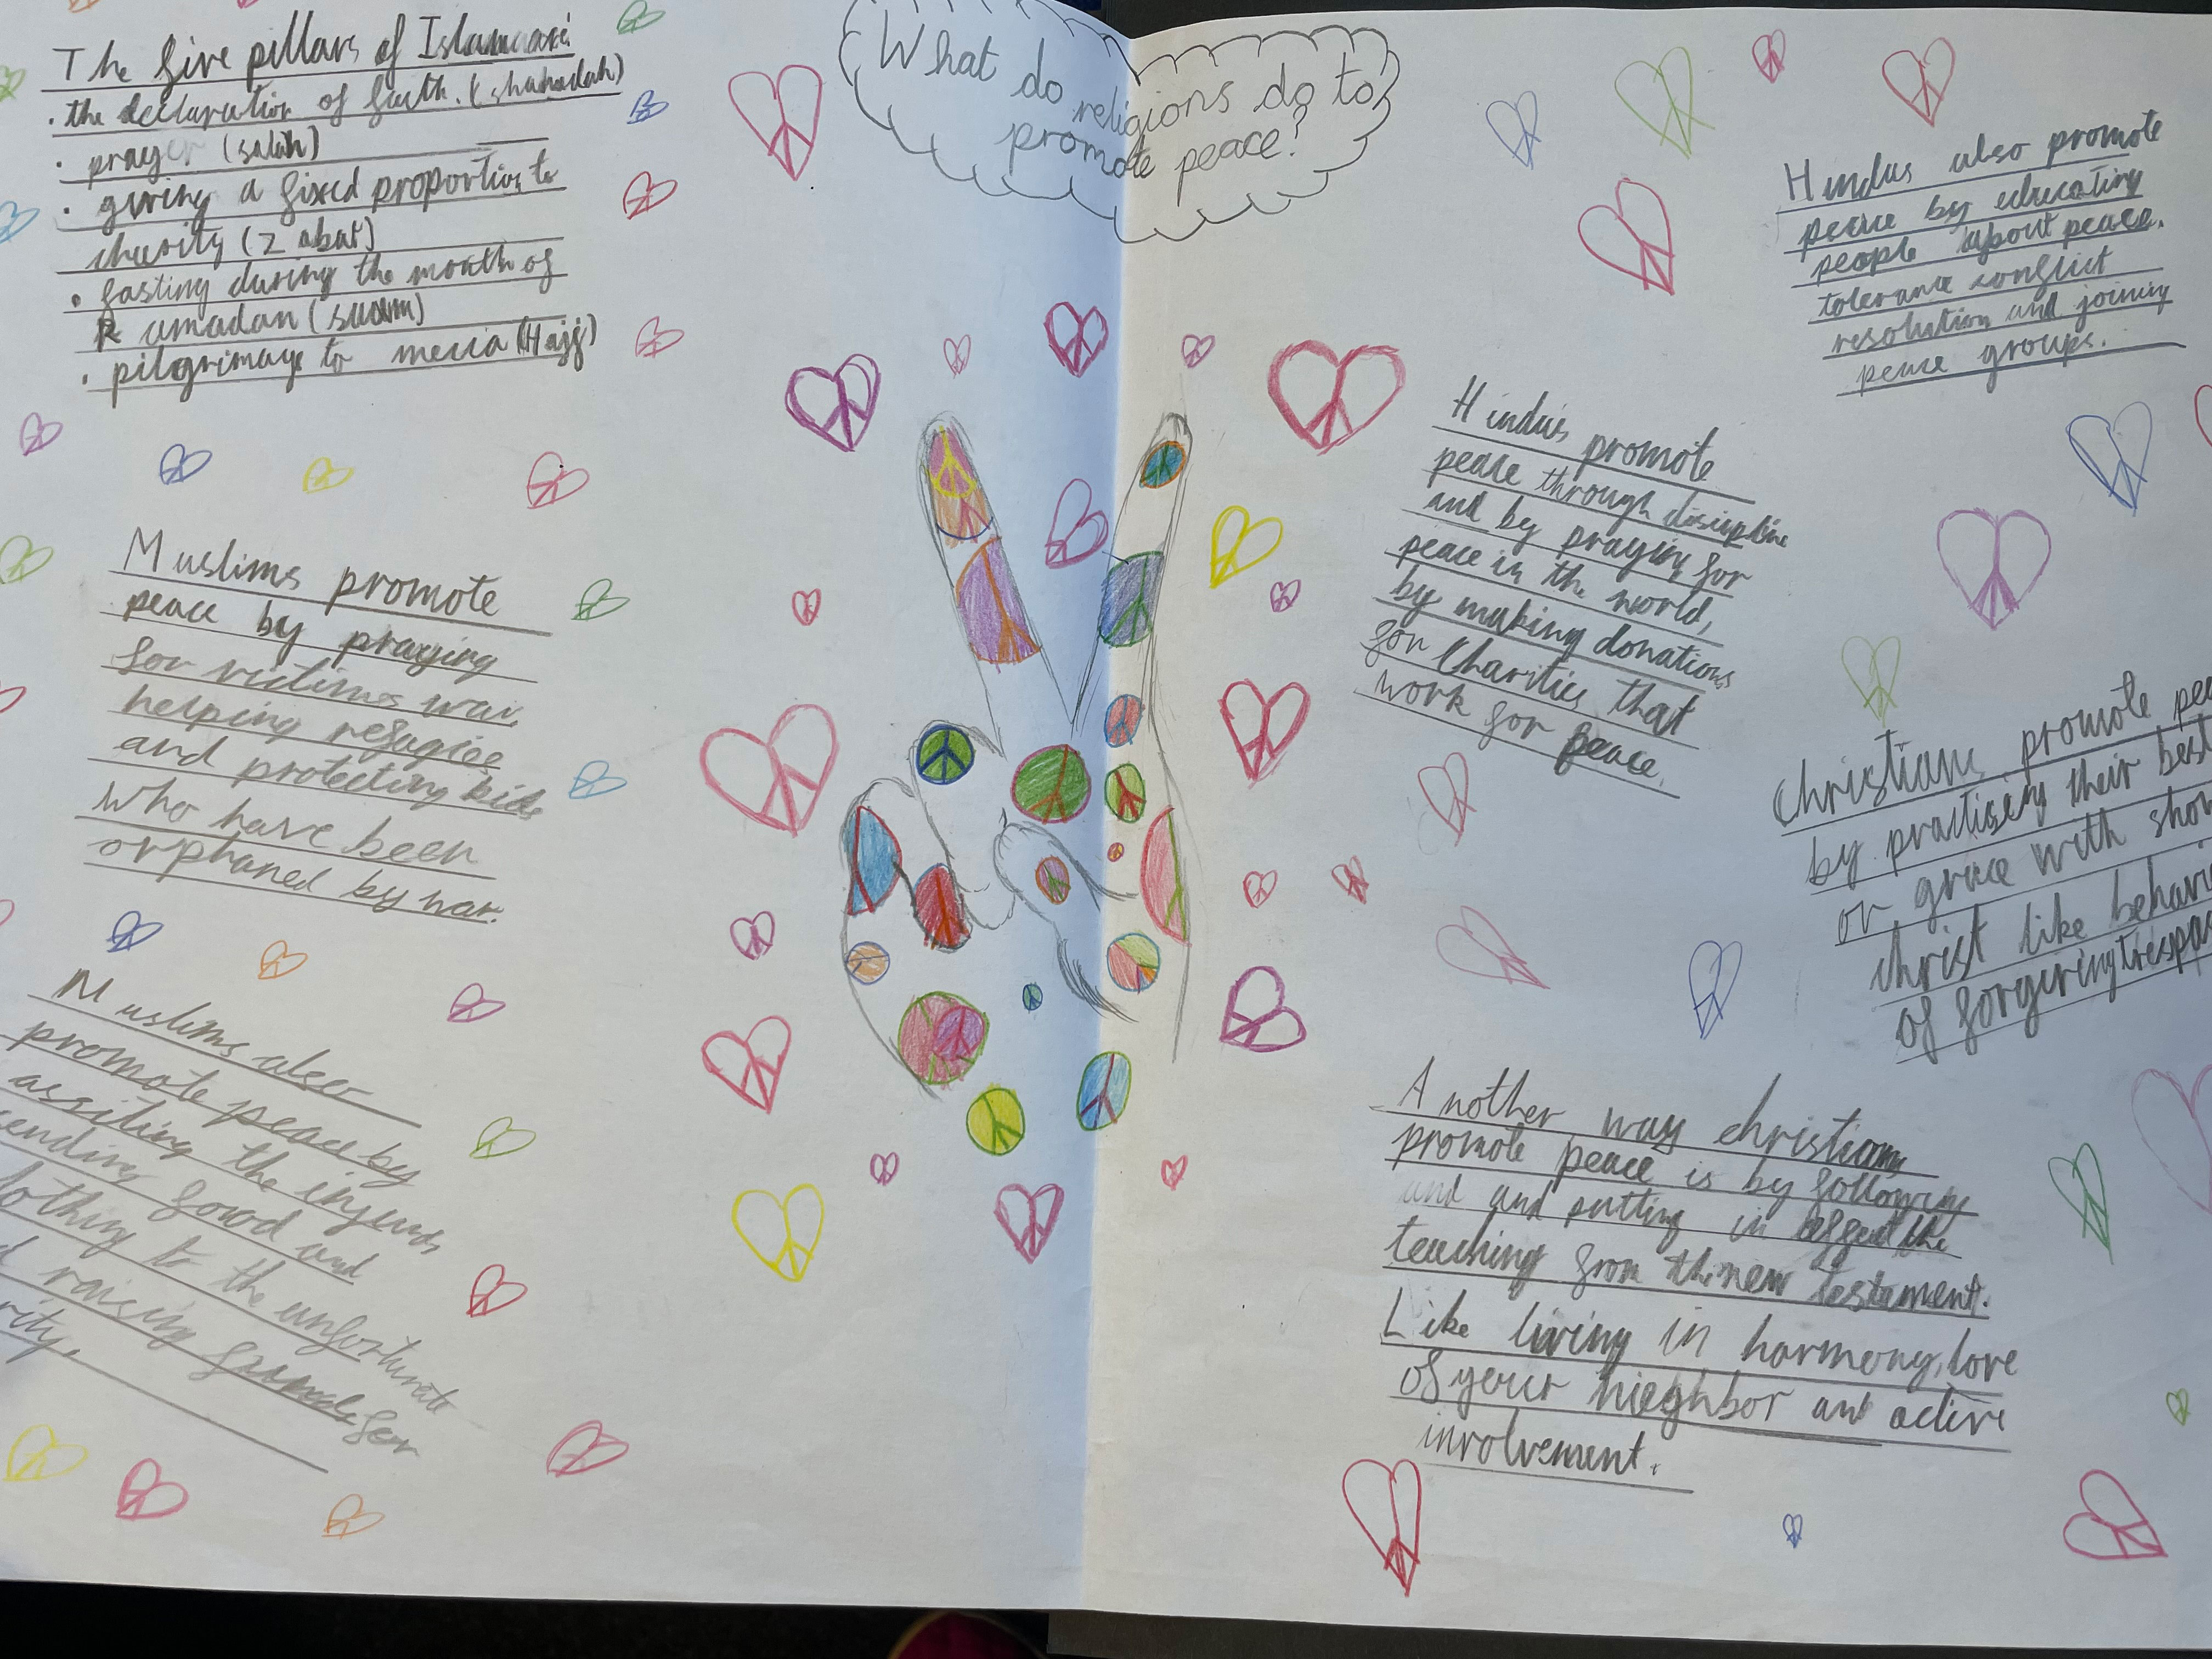 What do
religions do to
promote peace?
The five pillars of Islam are:
· the declaration of faith. (shahadah)
· prayer (salah)
· giving a fixed proportion to
charity (Zabat)
· fasting during the month of
Ramadan (suam)
· pilgrimage to mecca (Hajj)
Muslims promote
peace by praying
for victims war
helping refugiee
and protecting kids
who have been
orphaned by war.
Muslims also
promote peace by
assiting the injerds
sending food and
lothing to the unfortunate
raising funds for
rity.
Hindus also promote
peace by educating
people about peace.
tolerance conflict
resolution and joining
peace groups.
Hindus promote
peace through discipline
and by praying for
peace in the world,
by making donations
for Charities that
work for peace.
Christians promote pea
by practisey their best
or grace with show
christ like behavi
of forgiving trespas
Another way christians
promote peace is by following
and and putting in effect the
teaching from the new testament.
Like living in harmony, love
of your nieghbor and active
involvement.